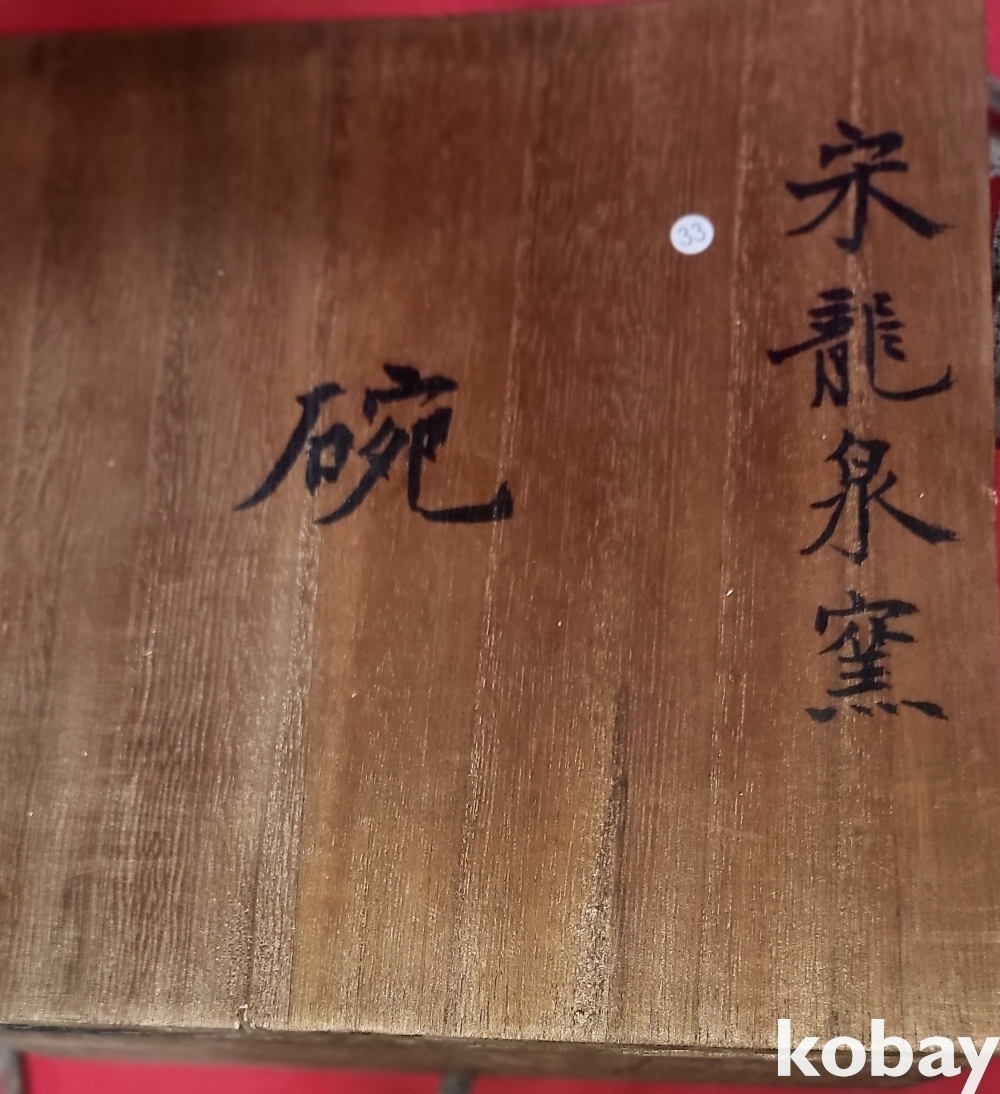 宋龍泉窯
碗
33
kobay